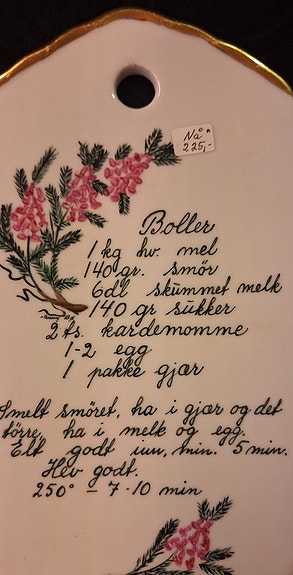 Nå
225,-
Boller
1 kg hv. mel
140 gr. smör
6dl skummet melk
140 gr sukker
2 ts. kardemomme
1-2 egg
1 pakke gjær
Smelt smöret, ha i gjær og det
törre, ha i melk og egg.
Elt godt min. 5 min.
Hev godt.
250° - 7-10 min